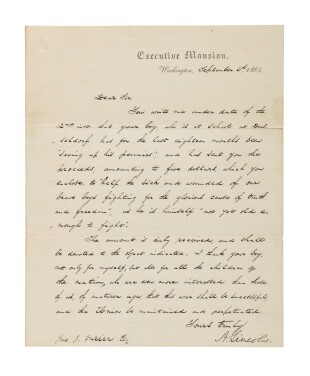 Executive Mansion,
Washington, September 5th, 1864.
Dear Sir
You write me under date of the
2nd inst. that your boy, who is at school at Dus
seldorf, has for the last eighteen months been
"saving up his pennies", and has sent you the
proceeds, amounting to five dollars, which you
enclose, to help the sick and wounded of our
brave boys fighting for the glorious cause of truth
and freedom", as he is himself "not yet old en
ough to fight".
The amount is duly received, and shall
be devoted to the object indicated. I thank your boy,
not only for myself, but also for all the children of
the nation, who are even more interested than those
of us, of maturer age, that this war shall be successful,
and the Union be maintained and perpetuated.
Yours truly
A. Lincoln